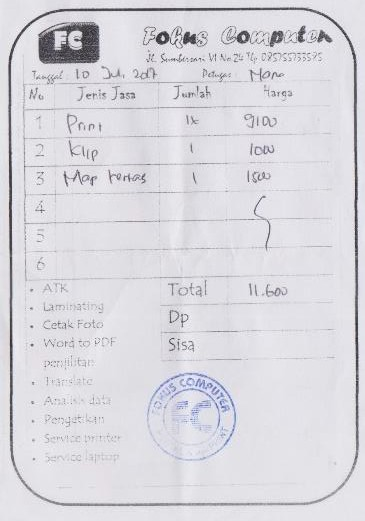 FC
Fokus Computer
Jl. Sumbersari VI No 24 Tlp 085755733575
Tanggal 10 Juli 2017 Petugas:
No Jenis Jasa Jumlah Harga
1 Print 1x 9100
2 Klip 1 1000
3 Map kertas 1 1500
4
5
6
• ATK
• Laminating
• Cetak Foto
• Word to PDF
penjilitan
• Translate
• Analisis data
• Pengetikan
• Service printer
• Service laptop
Total 11.600
Dp
Sisa
FOKUS COMPUTER
FC